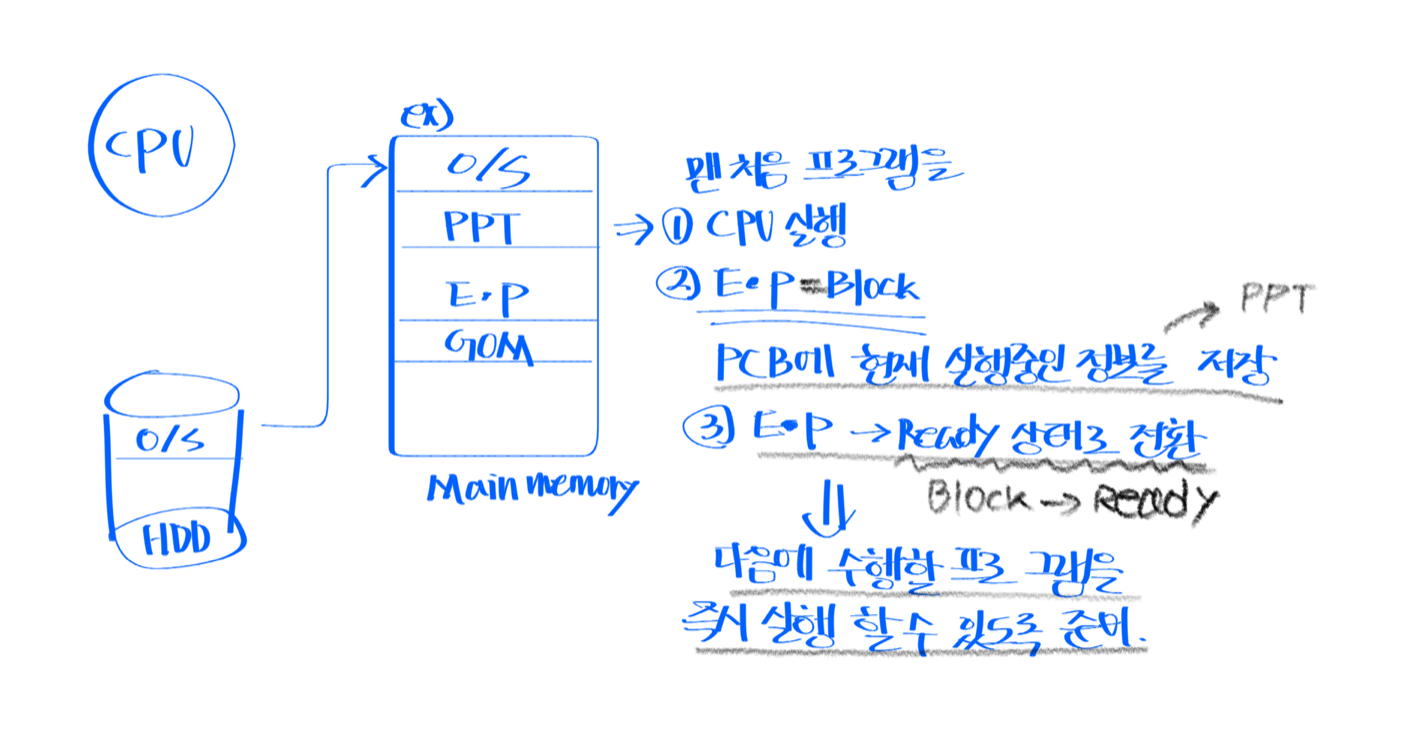 CPU
ex)
O/S
PPT
E·P
GOM
Main memory
O/S
HDD
맨 처음 프로그램을
⇒ ① CPU 실행
② E·P = Block
→ PPT
PCB에 현재 실행중인 정보를 저장
③ E·P → Ready 상태로 전환
Block → Ready
⇓
다음에 수행할 프로그램을
즉시 실행 할 수 있도록 준비.